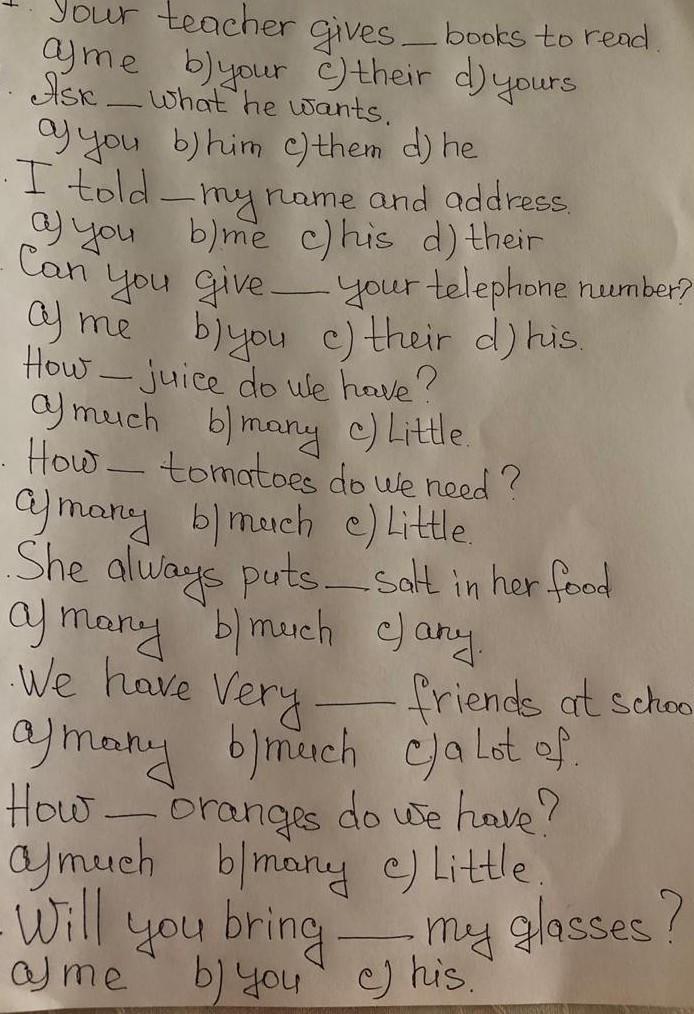 1. Your teacher gives _ books to read.
a) me b) your c) their d) yours
. Ask _ what he wants.
a) you b) him c) them d) he
. I told _ my name and address.
a) you b) me c) his d) their
. Can you give __ your telephone number?
a) me b) you c) their d) his.
How _ juice do we have?
a) much b) many c) Little.
. How _ tomatoes do we need?
a) many b) much c) Little.
. She always puts _ salt in her food
a) many b) much c) any.
. We have very __ friends at schoo
a) many b) much c) a Lot of.
How _ oranges do we have?
a) much b) many c) Little.
. Will you bring __ my glasses?
a) me b) you c) his.